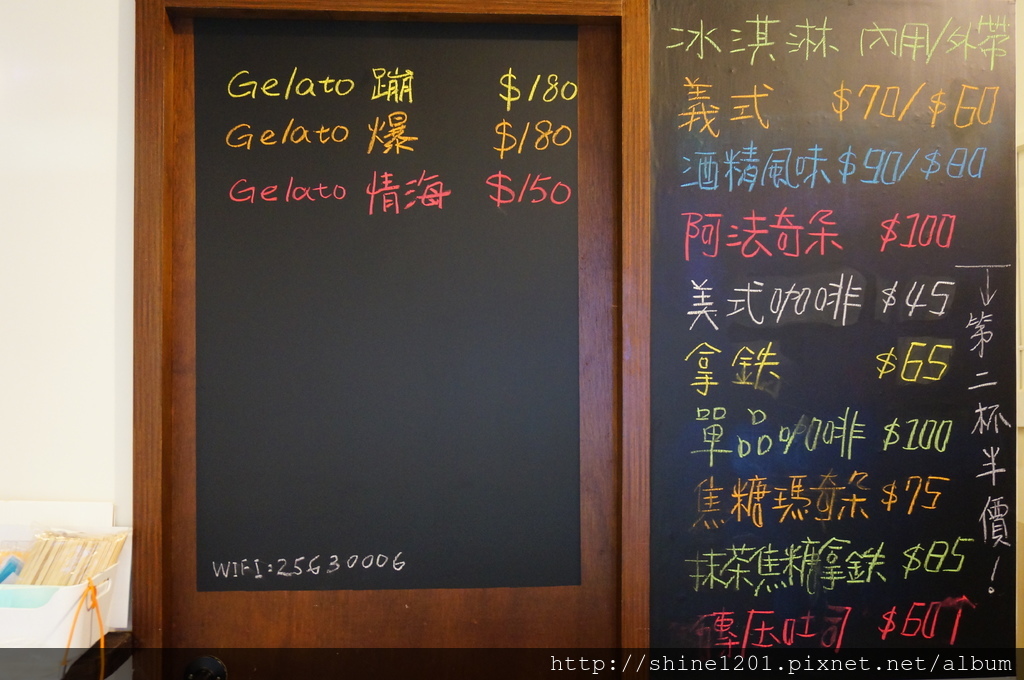 Gelato 蹦 $180
Gelato 爆 $180
Gelato 情海 $150
WIFI:25630006
冰淇淋 內用/外帶
義式 $70/$60
酒精風味 $90/$80
阿法奇朵 $100
美式咖啡 $45
拿鉄 $65
單品咖啡 $100
焦糖瑪奇朵 $75
抹茶焦糖拿鉄 $85
磚压吐司 $60↑
↓第二杯半價!
http://shine1201.pixnet.net/album